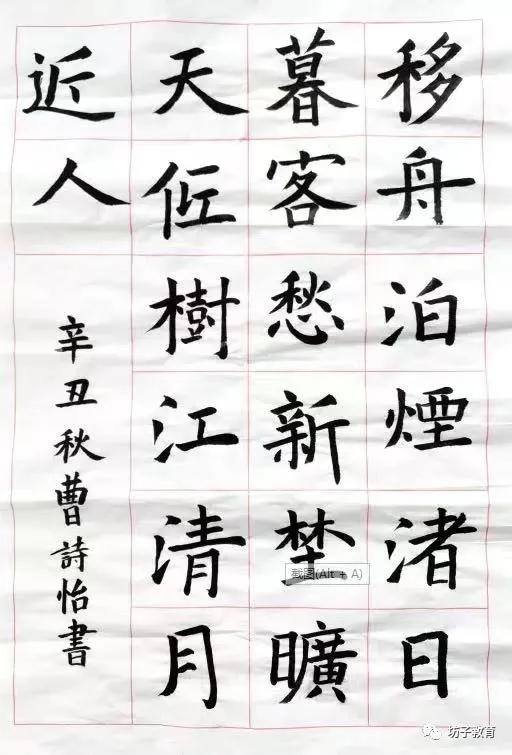 移舟泊煙渚日
暮客愁新埜曠
天仾樹江清月
近人
辛丑秋曹詩怡書
截图(Alt + A)
坊子教育